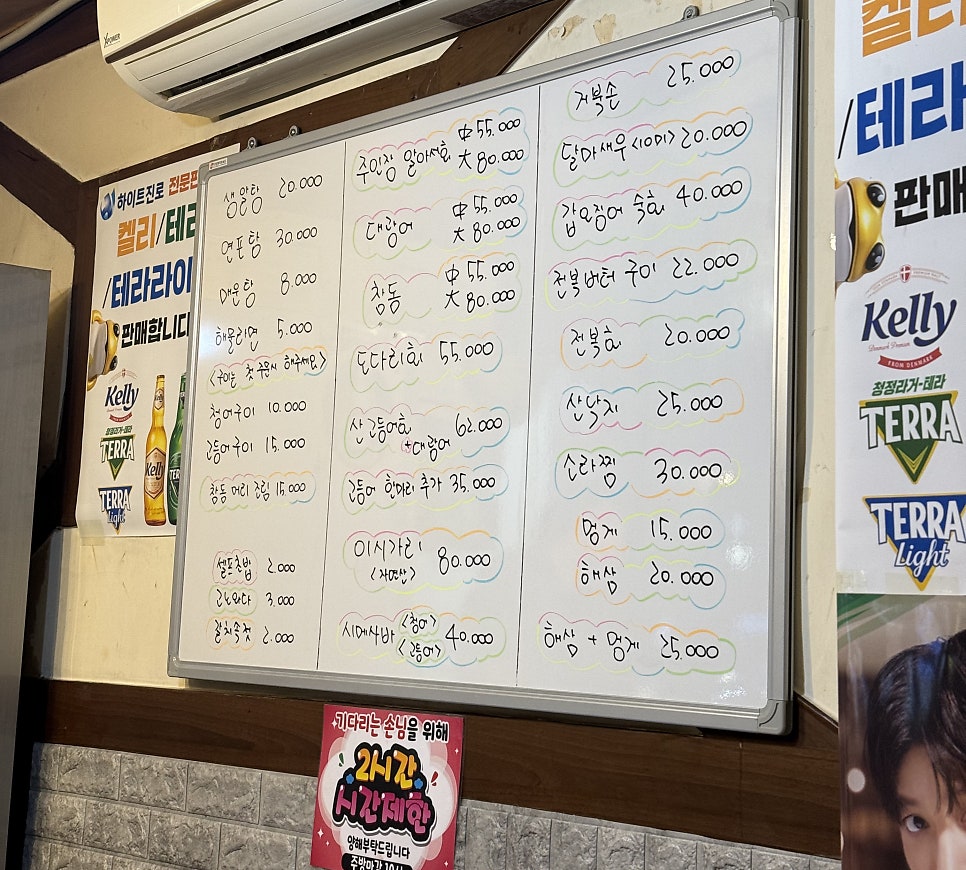 XPOWER
하이트진로 전문판
켈리/테라
/테라라이
판매합니다
Kelly
청정라거-테라
TERRA
TERRA
Light
Kelly
생알탕 20.000
연포탕 30.000
매운탕 8.000
해물라면 5.000
<구이는 첫 주문시 해주세요>
청어구이 10.000
고등어구이 15.000
참돔 머리 조림 15.000
셀프초밥 2.000
고노와다 3.000
갈치속젓 2.000
주인장 알아서회 中 55.000
大 80.000
대광어 中 55.000
大 80.000
참돔 中 55.000
大 80.000
도다리회 55.000
산고등어회 + 대광어 62.000
고등어 한마리 추가 35.000
이시가리 <자연산> 80.000
시메사바 <청어> <고등어> 40.000
거북손 25.000
달마새우 <10미> 20.000
갑오징어 숙회 40.000
전복버터 구이 22.000
전복회 20.000
산낙지 25.000
소라찜 30.000
멍게 15.000
해삼 20.000
해삼 + 멍게 25.000
기다리는 손님을 위해
2시간
시간제한
양해부탁드립니다
주방마감
켈리
/테라
판매
Kelly
Denmark Premium
FROM DENMARK
청정라거-테라
TERRA
TERRA
Light